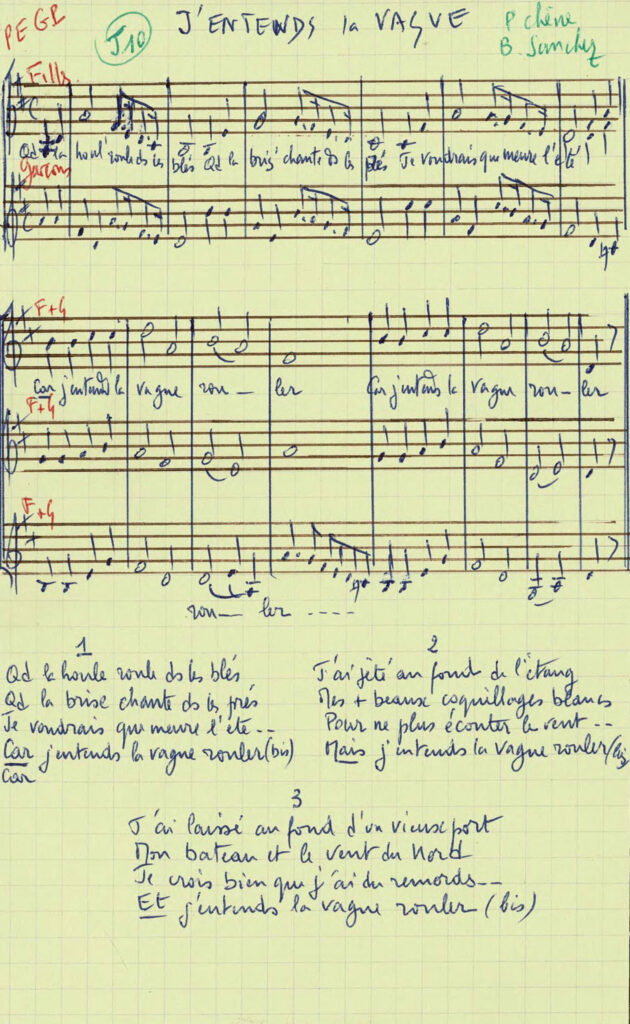 PEGP J10 J'ENTENDS la VAGUE P Chène
B. Sanchez
Filles
Qd la houl' roule ds les blés Qd la bris' chante ds les prés Je voudrais que meure l'été
Garçons
F+G
Car j'entends la vague rou_ ler Car j'entends la vague rou_ ler
F+G
F+G
rou_ ler ----
1
Qd la houle roule ds les blés
Qd la brise chante ds les prés
Je voudrais que meure l'été --
Car j'entends la vague rouler (bis)
Car
2
J'ai jeté au fond de l'étang
Mes + beaux coquillages blancs
Pour ne plus écouter le vent --
Mais j'entends la vague rouler (bis)
3
J'ai laissé au fond d'un vieux port
Mon bateau et le vent du Nord
Je crois bien que j'ai du remords--
Et j'entends la vague rouler (bis)